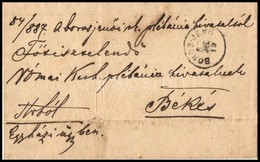 84/887. A borosjenői rk. plébánia hivataltól
Főtisztelendő
Római Kath. plébánia hivatalnak
Békés
Egyházi ügyben.
BOROS-JENŐ